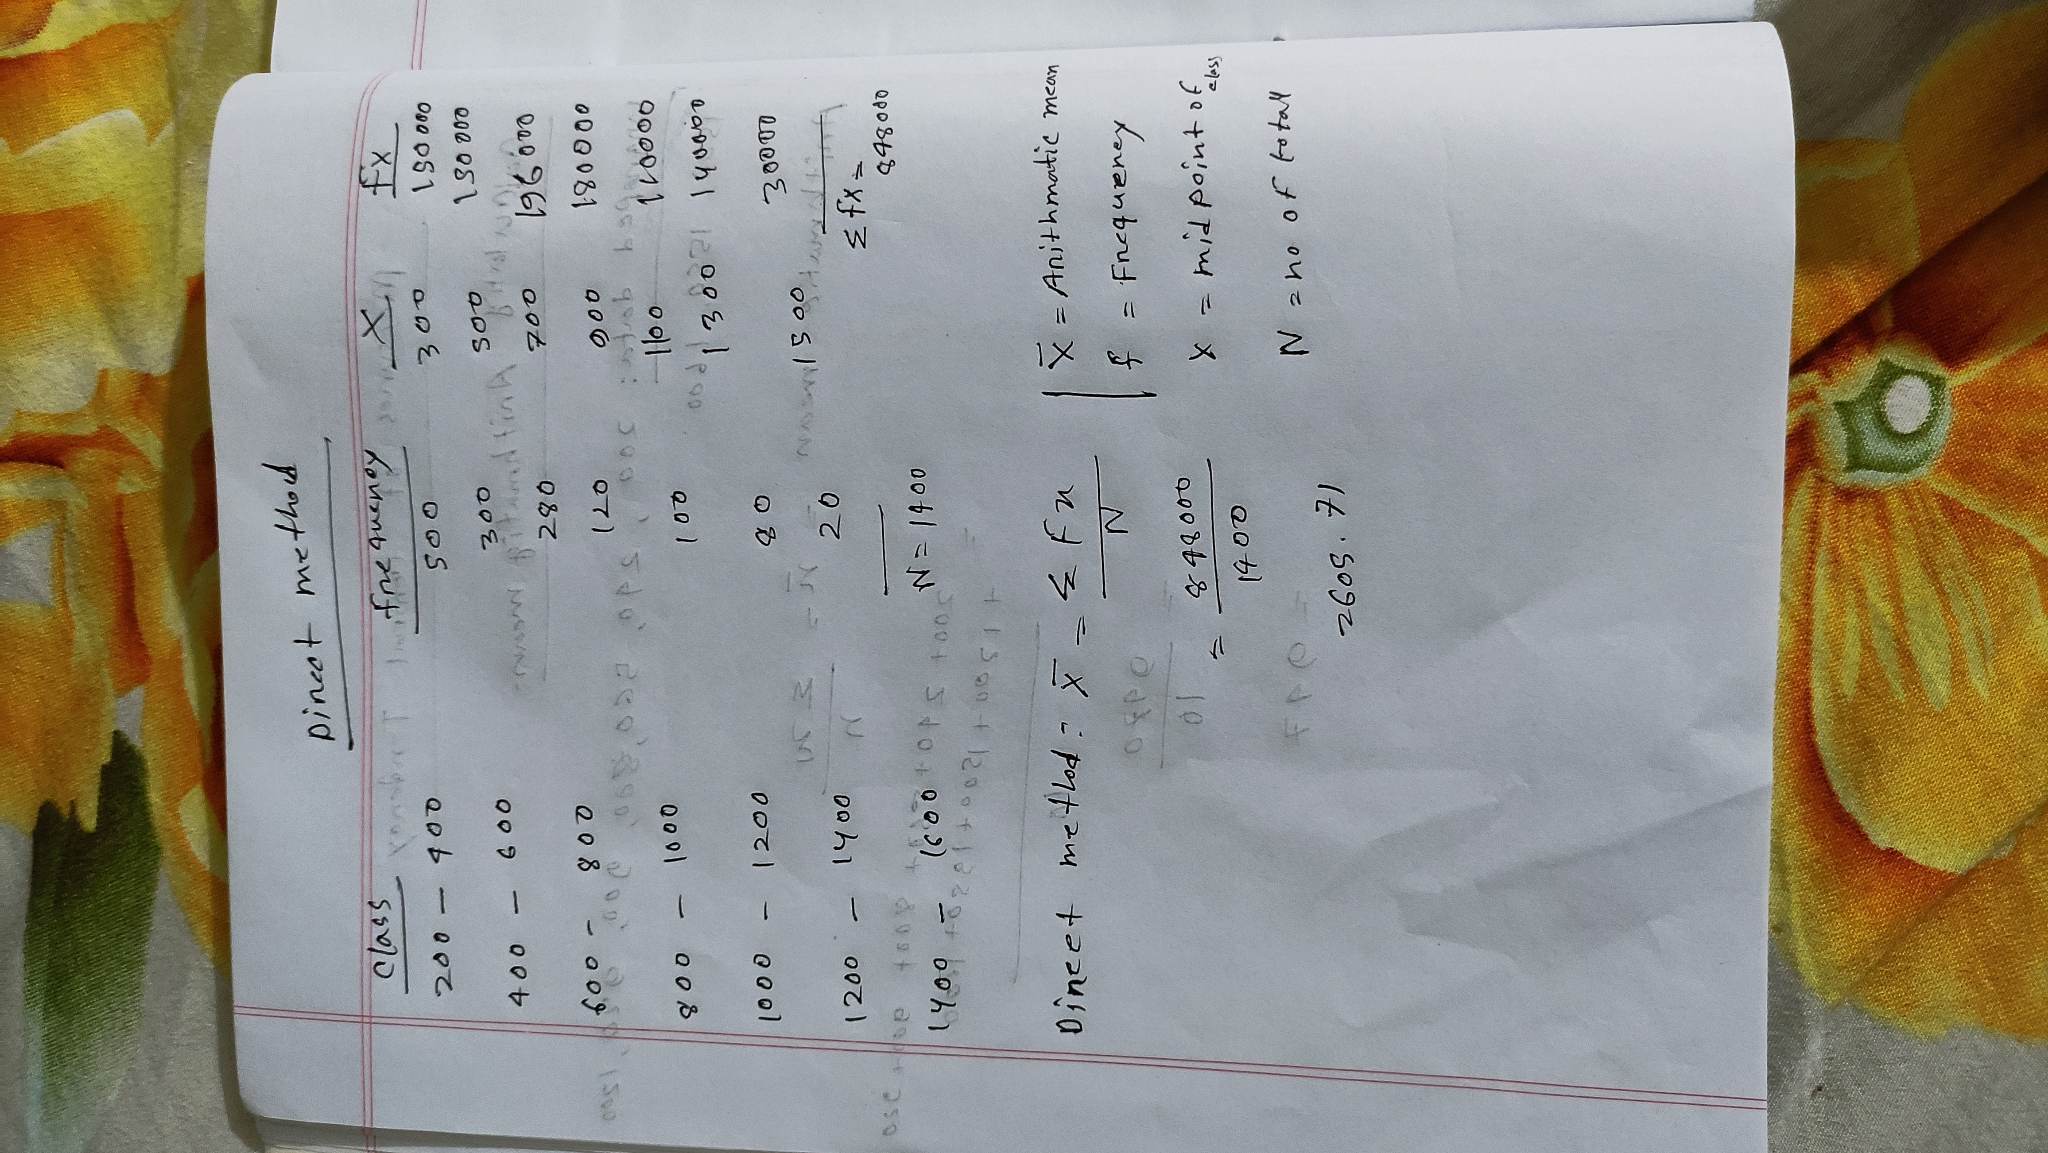 Direct method
class frequency X fx
200 - 400 500 300 150000
400 - 600 300 500 150000
600 - 800 280 700 196000
800 - 1000 120 900 180000
1000 - 1200 100 1100 110000
1200 - 1400 80 1300 140000
1400 - 1600 20 1500 30000
N = 1400 Σfx = 848000
Direct method: x̄ = Σfx
N
= 848000
1400
= 605.71
x̄ = Arithmatic mean
f = Frequency
x = mid point of class
N = no of total